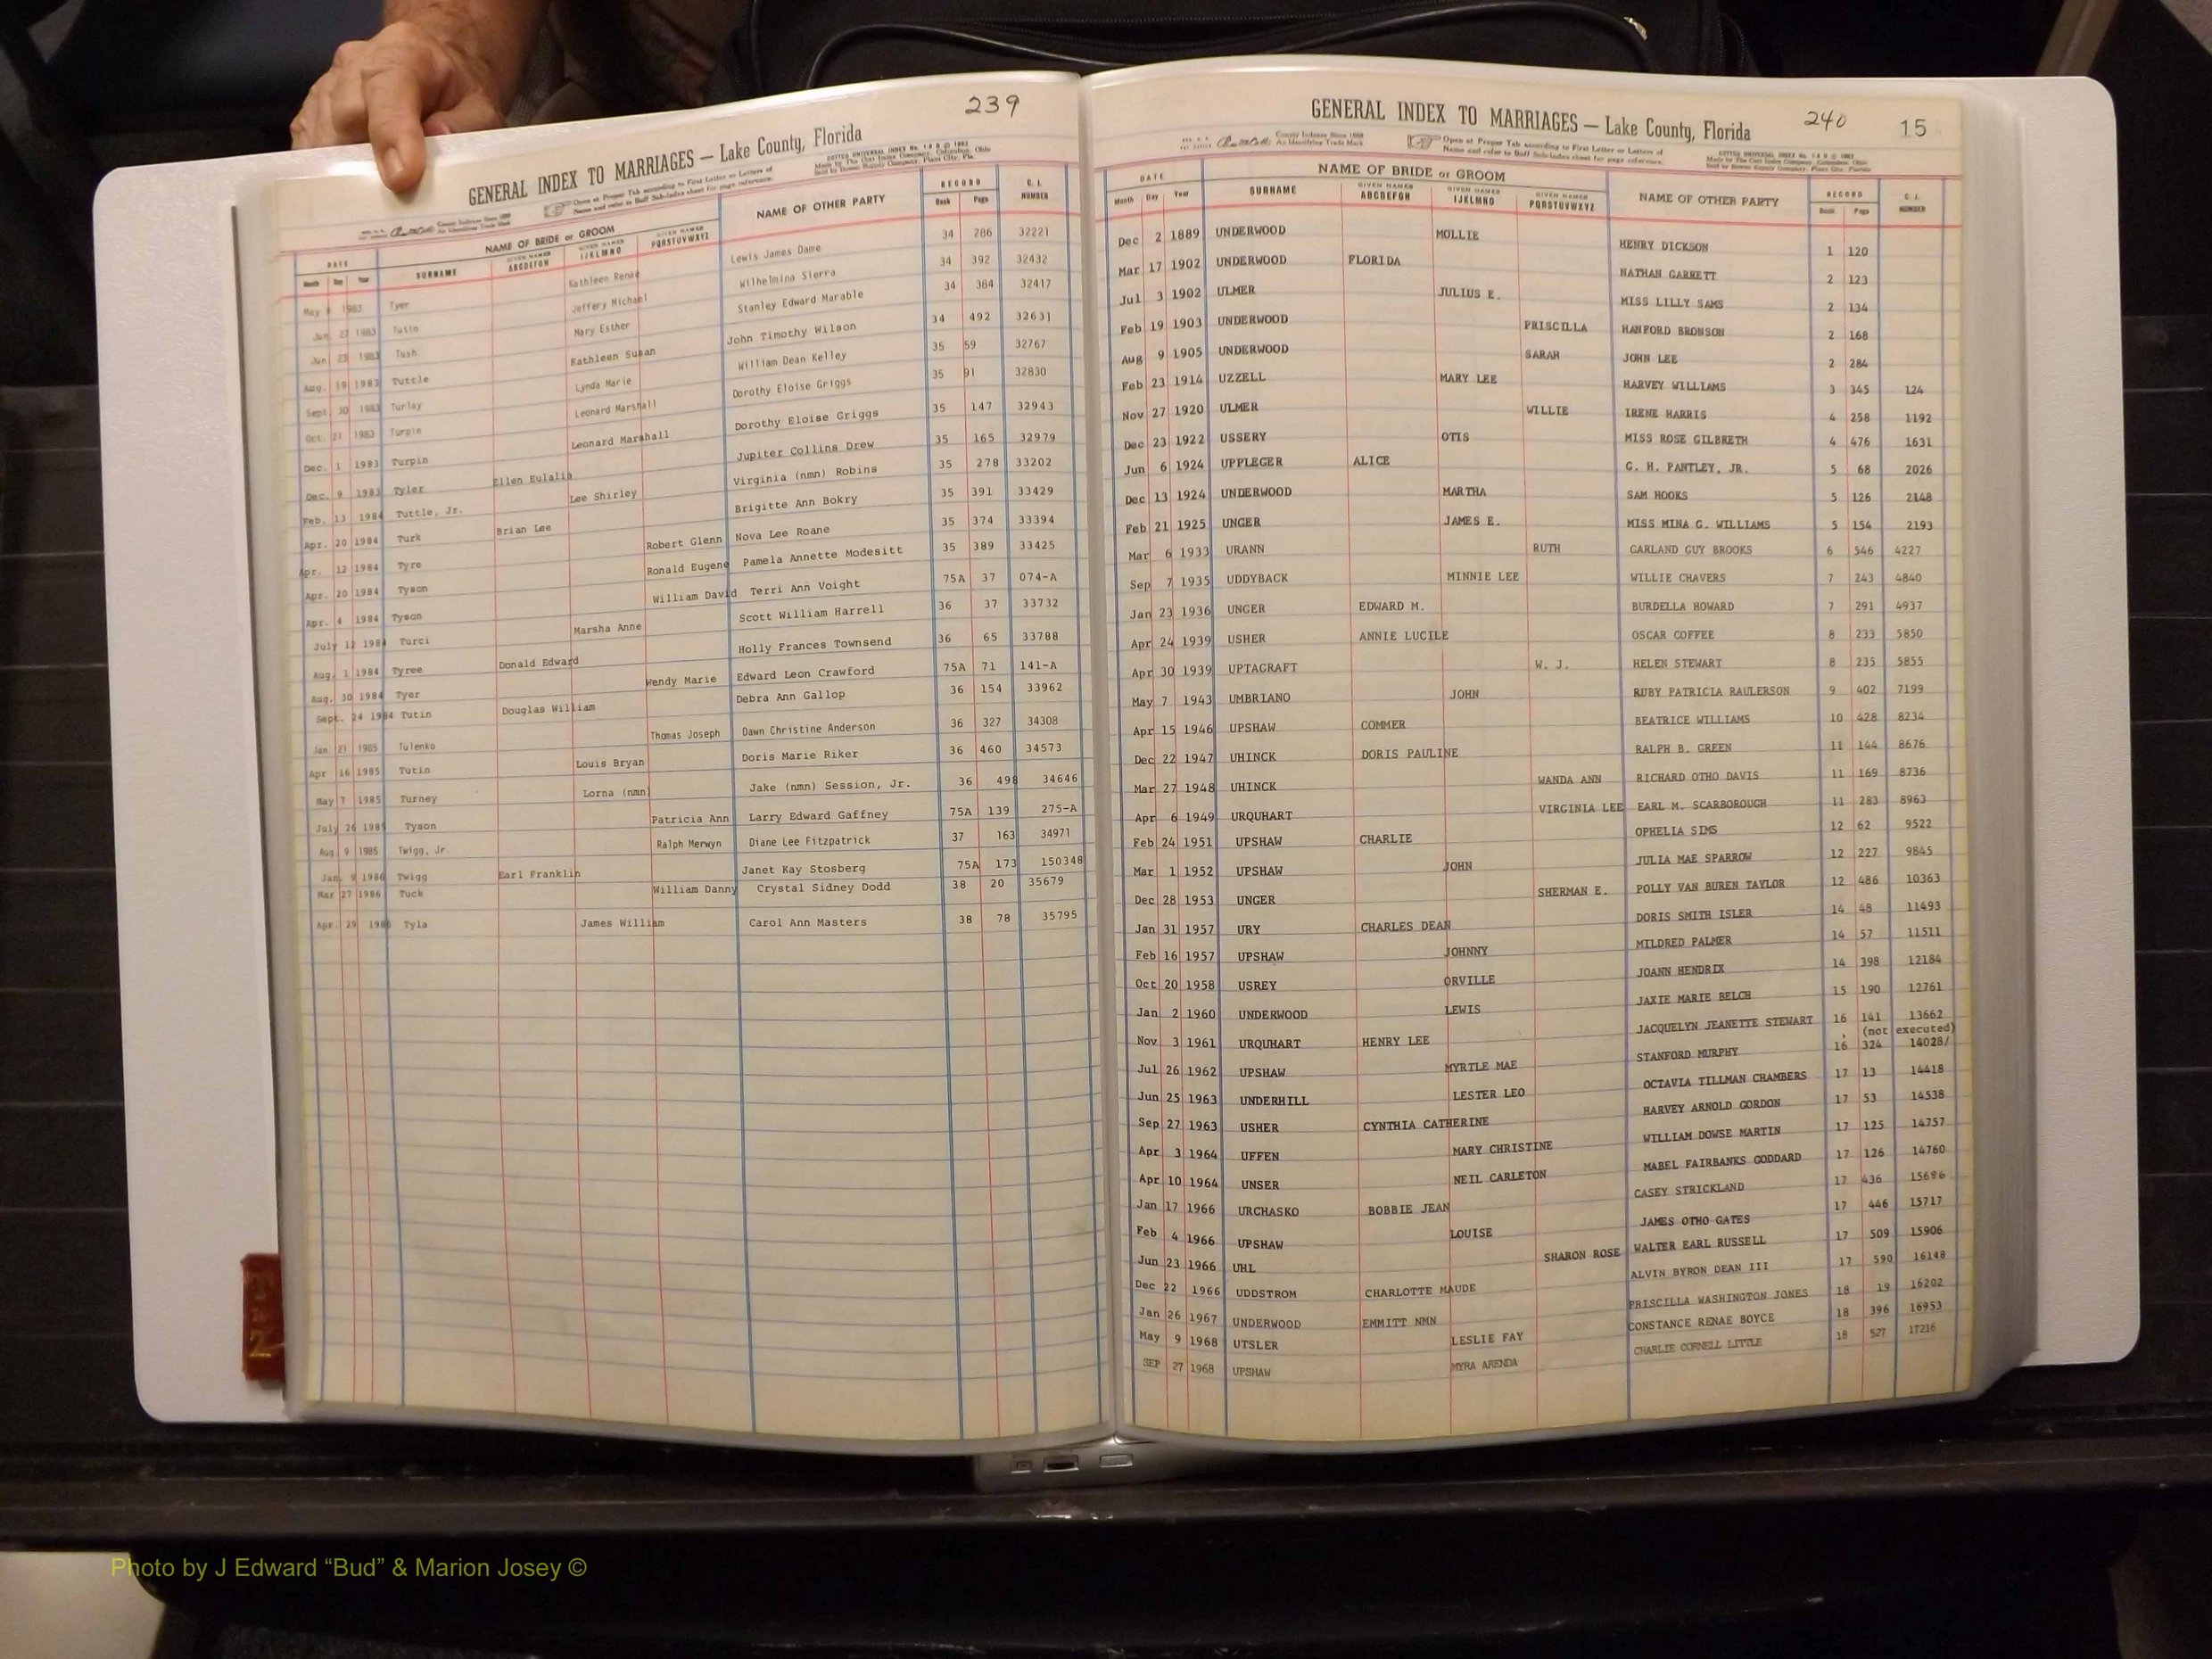 239
GENERAL INDEX TO MARRIAGES — Lake County, Florida
DATE NAME OF BRIDE or GROOM NAME OF OTHER PARTY RECORD C. I. NUMBER
Month Day Year SURNAME GIVEN NAMES ABCDEFGH GIVEN NAMES IJKLMNO GIVEN NAMES PQRSTUVWXYZ Book Page
May 1983 Tyer Kathleen Renae Lewis James Dame 34 286 32221
Jun 27 1983 Tutin Jeffery Michael Wilhelmina Sierra 34 392 32432
Jun 23 1983 Tush Mary Esther Stanley Edward Marable 34 384 32417
Aug. 19 1983 Tuttle Kathleen Susan John Timothy Wilson 34 492 32631
Sept 30 1983 Turlay Lynda Marie William Dean Kelley 35 59 32767
Oct. 21 1983 Turpin Leonard Marshall Dorothy Eloise Griggs 35 91 32830
Dec. 1 1983 Turpin Leonard Marshall Dorothy Eloise Griggs 35 147 32943
Dec. 9 1983 Tyler Ellen Eulalia Jupiter Collins Drew 35 165 32979
Feb. 13 1984 Tuttle, Jr. Lee Shirley Virginia (nmn) Robins 35 278 33202
Apr. 20 1984 Turk Brian Lee Brigitte Ann Bokry 35 391 33429
Apr. 12 1984 Tyre Robert Glenn Nova Lee Roane 35 374 33394
Apr. 20 1984 Tyson Ronald Eugene Pamela Annette Modesitt 35 389 33425
Apr. 4 1984 Tyson William David Terri Ann Voight 75A 37 074-A
July 12 1984 Turci Marsha Anne Scott William Harrell 36 37 33732
Aug. 1 1984 Tyree Donald Edward Holly Frances Townsend 36 65 33788
Aug. 30 1984 Tyer Wendy Marie Edward Leon Crawford 75A 71 141-A
Sept. 24 1984 Tutin Douglas William Debra Ann Gallop 36 154 33962
Jan 21 1985 Tulenko Thomas Joseph Dawn Christine Anderson 36 327 34308
Apr 16 1985 Tutin Louis Bryan Doris Marie Riker 36 460 34573
May 7 1985 Turney Lorna (nmn) Jake (nmn) Session, Jr. 36 498 34646
July 26 1985 Tyson Patricia Ann Larry Edward Gaffney 75A 139 275-A
Aug. 9 1985 Twigg, Jr. Ralph Merwyn Diane Lee Fitzpatrick 37 163 34971
Jan. 9 1986 Twigg Earl Franklin Janet Kay Stosberg 75A 173 150348
Mar 27 1986 Tuck William Danny Crystal Sidney Dodd 38 20 35679
Apr. 29 1986 Tyla James William Carol Ann Masters 38 78 35795
T
Z
240 15
GENERAL INDEX TO MARRIAGES — Lake County, Florida
Open at Proper Tab according to First Letter or Letters of
Name and refer to Buff Sub-Index sheet for page reference.
DATE NAME OF BRIDE or GROOM NAME OF OTHER PARTY RECORD C. I. NUMBER
Month Day Year SURNAME GIVEN NAMES ABCDEFGH GIVEN NAMES IJKLMNO GIVEN NAMES PQRSTUVWXYZ Book Page
Dec 2 1889 UNDERWOOD MOLLIE HENRY DICKSON 1 120
Mar 17 1902 UNDERWOOD FLORIDA NATHAN GARRETT 2 123
Jul 3 1902 ULMER JULIUS E. MISS LILLY SAMS 2 134
Feb 19 1903 UNDERWOOD PRISCILLA HANFORD BRONSON 2 168
Aug 9 1905 UNDERWOOD SARAH JOHN LEE 2 284
Feb 23 1914 UZZELL MARY LEE HARVEY WILLIAMS 3 345 124
Nov 27 1920 ULMER WILLIE IRENE HARRIS 4 258 1192
Dec 23 1922 USSERY OTIS MISS ROSE GILBRETH 4 476 1631
Jun 6 1924 UPPLEGER ALICE G. H. PANTLEY, JR. 5 68 2026
Dec 13 1924 UNDERWOOD MARTHA SAM HOOKS 5 126 2148
Feb 21 1925 UNGER JAMES E. MISS MINA G. WILLIAMS 5 154 2193
Mar 6 1933 URANN RUTH GARLAND GUY BROOKS 6 546 4227
Sep 7 1935 UDDYBACK MINNIE LEE WILLIE CHAVERS 7 243 4840
Jan 23 1936 UNGER EDWARD M. BURDELLA HOWARD 7 291 4937
Apr 24 1939 USHER ANNIE LUCILE OSCAR COFFEE 8 233 5850
Apr 30 1939 UPTAGRAFT W. J. HELEN STEWART 8 235 5855
May 7 1943 UMBRIANO JOHN RUBY PATRICIA RAULERSON 9 402 7199
Apr 15 1946 UPSHAW COMMER BEATRICE WILLIAMS 10 428 8234
Dec 22 1947 UHINCK DORIS PAULINE RALPH B. GREEN 11 144 8676
Mar 27 1948 UHINCK WANDA ANN RICHARD OTHO DAVIS 11 169 8736
Apr 6 1949 URQUHART VIRGINIA LEE EARL M. SCARBOROUGH 11 283 8963
Feb 24 1951 UPSHAW CHARLIE OPHELIA SIMS 12 62 9522
Mar 1 1952 UPSHAW JOHN JULIA MAE SPARROW 12 227 9845
Dec 28 1953 UNGER SHERMAN E. POLLY VAN BUREN TAYLOR 12 486 10363
Jan 31 1957 URY CHARLES DEAN DORIS SMITH ISLER 14 48 11493
Feb 16 1957 UPSHAW JOHNNY MILDRED PALMER 14 57 11511
Oct 20 1958 USREY ORVILLE JOANN HENDRIX 14 398 12184
Jan 2 1960 UNDERWOOD LEWIS JAXIE MARIE BELCH 15 190 12761
Nov 3 1961 URQUHART HENRY LEE JACQUELYN JEANETTE STEWART 16 141 13662
(not executed)
Jul 26 1962 UPSHAW MYRTLE MAE STANFORD MURPHY 16 324 14028/
Jun 25 1963 UNDERHILL LESTER LEO OCTAVIA TILLMAN CHAMBERS 17 13 14418
Sep 27 1963 USHER CYNTHIA CATHERINE HARVEY ARNOLD GORDON 17 53 14538
Apr 3 1964 UFFEN MARY CHRISTINE WILLIAM DOWSE MARTIN 17 125 14757
Apr 10 1964 UNSER NEIL CARLETON MABEL FAIRBANKS GODDARD 17 126 14760
Jan 17 1966 URCHASKO BOBBIE JEAN CASEY STRICKLAND 17 436 15686
Feb 4 1966 UPSHAW LOUISE JAMES OTHO GATES 17 446 15717
Jun 23 1966 UHL SHARON ROSE WALTER EARL RUSSELL 17 509 15906
Dec 22 1966 UDDSTROM CHARLOTTE MAUDE ALVIN BYRON DEAN III 17 590 16148
Jan 26 1967 UNDERWOOD EMMITT NMN PRISCILLA WASHINGTON JONES 18 19 16202
May 9 1968 UTSLER LESLIE FAY CONSTANCE RENAE BOYCE 18 396 16953
SEP 27 1968 UPSHAW MYRA ARENDA CHARLIE CORNELL LITTLE 18 527 17216
Photo by J Edward “Bud” & Marion Josey ©